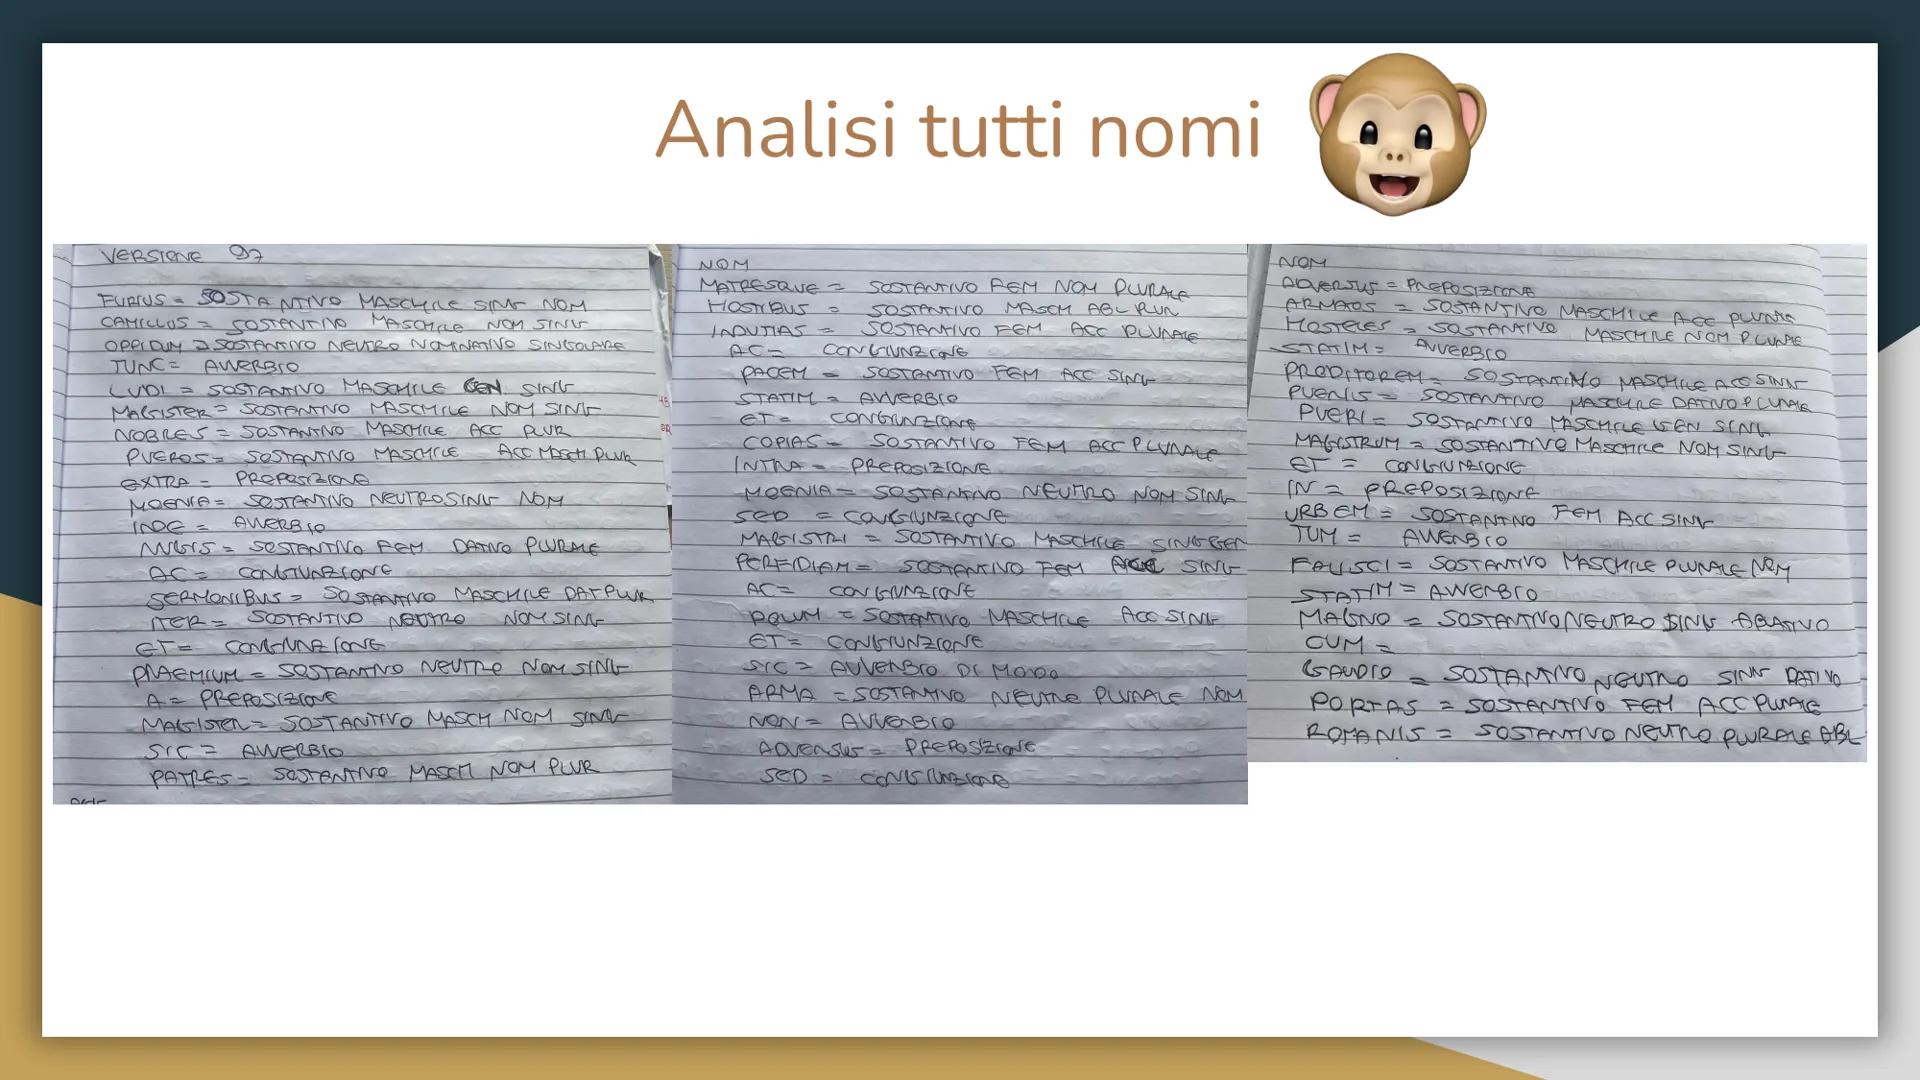 Analisi tutti nomi
VERSIONE 97
FURIUS = SOSTANTIVO MASCHILE SING NOM
CAMILLUS = SOSTENTIVO MASCHILE NOM SING
OPPIDUM = SOSTANTIVO NEUTRO NOMINATIVO SINGOLARE
TUNC = AVVERBIO
LUDI = SOSTANTIVO MASCHILE GEN SING
MAGISTER = SOSTANTIVO MASCHILE NOM SING
NOBRES = SOSTANTIVO MASCHILE ACC PLUR
PUEROS = SOSTANTIVO MASCHILE ACC MASCH PLUR
EXTRA = PREPOSIZIONE
MOENIA = SOSTANTIVO NEUTRO SING NOM
INDE = AVVERBIO
NUGIS = SOSTANTIVO FEM DATIVO PLURALE
AC = CONGIUNZIONE
SERMONIBUS = SOSTANTIVO MASCHILE DAT PLUR
ITER = SOSTANTIVO NEUTRO NOM SING
ET = CONGIUNZIONE
PRAEMIUM = SOSTANTIVO NEUTRO NOM SING
A = PREPOSIZIONE
MAGISTER = SOSTANTIVO MASCH NOM SING
SIC = AVVERBIO
PATRES = SOSTANTIVO MASCH NOM PLUR
NOM
MATRESQUE = SOSTANTIVO FEM NOM PLURALE
HOSTIBUS = SOSTANTIVO MASCH ABL PLUR
INDUTIAS = SOSTANTIVO FEM ACC PLURALE
AC = CONGIUNZIONE
PACEM = SOSTANTIVO FEM ACC SING
STATIM = AVVERBIO
ET = CONGIUNZIONE
COPIAS = SOSTANTIVO FEM ACC PLURALE
INTRA = PREPOSIZIONE
MOENIA = SOSTANTIVO NEUTRO NOM SING
SED = CONGIUNZIONE
MAGISTRI = SOSTANTIVO MASCHILE SING GEN
PERFIDIAM = SOSTANTIVO FEM ACC SING
AC = CONGIUNZIONE
= SOSTANTIVO MASCHILE ACC SING
ET = CONGIUNZIONE
SIC = AVVERBIO DI MODO
ARMA = SOSTANTIVO NEUTRO PLURALE NOM
NON = AVVERBIO
ADVERSUS = PREPOSIZIONE
SED = CONGIUNZIONE
NOM
ADVERSUS = PREPOSIZIONE
ARMATOS = SOSTANTIVO MASCHILE ACC PLURALE
HOSTELES = SOSTANTIVO MASCHILE NOM PLURALE
STATIM = AVVERBIO
PRODITOREM = SOSTANTIVO MASCHILE ACC SING
PUERIS = SOSTANTIVO MASCHILE DATIVO PLURALE
PUERI = SOSTANTIVO MASCHILE GEN SING
MAGISTRUM = SOSTANTIVO MASCHILE NOM SING
ET = CONGIUNZIONE
IN = PREPOSIZIONE
URBEM = SOSTANTIVO FEM ACC SING
TUM = AVVERBIO
FALISCI = SOSTANTIVO MASCHILE PLURALE NOM
STATIM = AVVERBIO
MAGNO = SOSTANTIVO NEUTRO SING ABLATIVO
CUM =
GAUDIO = SOSTANTIVO NEUTRO SING DATIVO
PORTAS = SOSTANTIVO FEM ACC PLURALE
ROMANIS = SOSTANTIVO NEUTRO PLURALE ABL